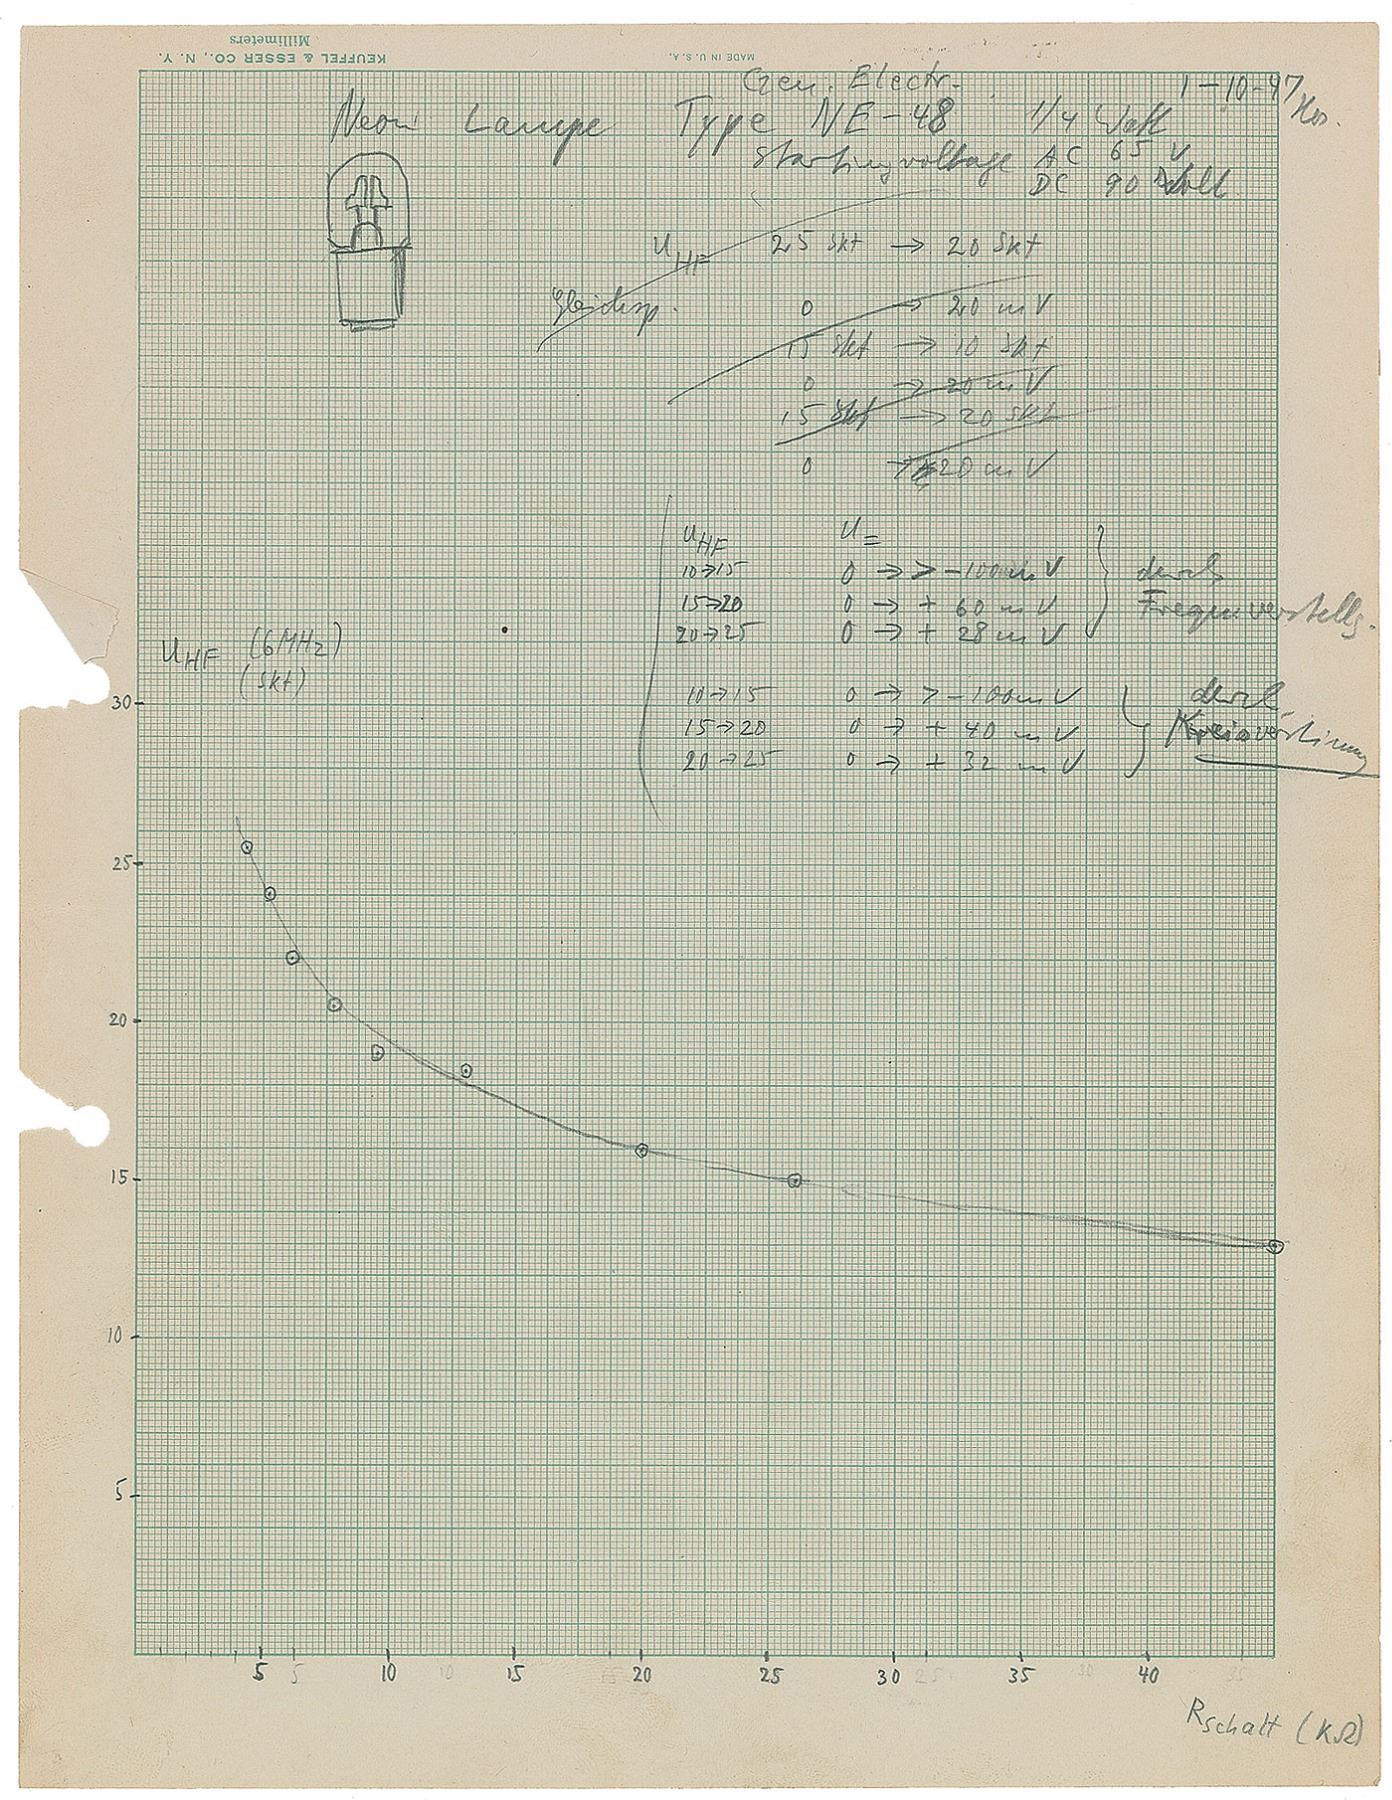 KEUFFEL & ESSER CO., N. Y.
Millimeters
MADE IN U. S. A.
Gen. Electr.
1-10-47
Neon Lampe Type NE-48 1/4 Watt
Startingvoltage AC 65 V
DC 90 Volt
U HF 25 Skt → 20 Skt
Gleichsp. 0 → 20 mV
15 Skt → 10 Skt
0 → 20 mV
15 Skt → 20 Skt
0 → 20 mV
U HF U =
10→15 0 → > -100 mV durch
15→20 0 → + 60 mV Frequverstellg.
20→25 0 → + 28 mV
10→15 0 → > -100mV durch
15→20 0 → + 40 mV Kreisverstimmung
20→25 0 → + 32 mV
U HF (6MHz)
(Skt)
30
25
20
15
10
5
5 10 15 20 25 30 35 40
5 10 15 20 25 30 35
R schalt (KΩ)